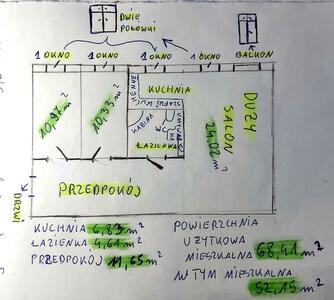 DWIE
POŁOWKI
1 OKNO
1 OKNO
1 OKNO
1 OKNO
BALKON
10,97 m²
10,33 m²
KUCHNIA
KABINA
WC
ŁAZIENKA
DUŻY
SALON
24,02 m²
PRZEDPOKÓJ
DRZWI
KUCHNIA 6,83 m²
ŁAZIENKA 4,61 m²
PRZEDPOKÓJ 11,65 m²
POWIERZCHNIA
UŻYTKOWA
MIESZKALNA 68,41 m²
W TYM MIESZKALNA
52,15 m²